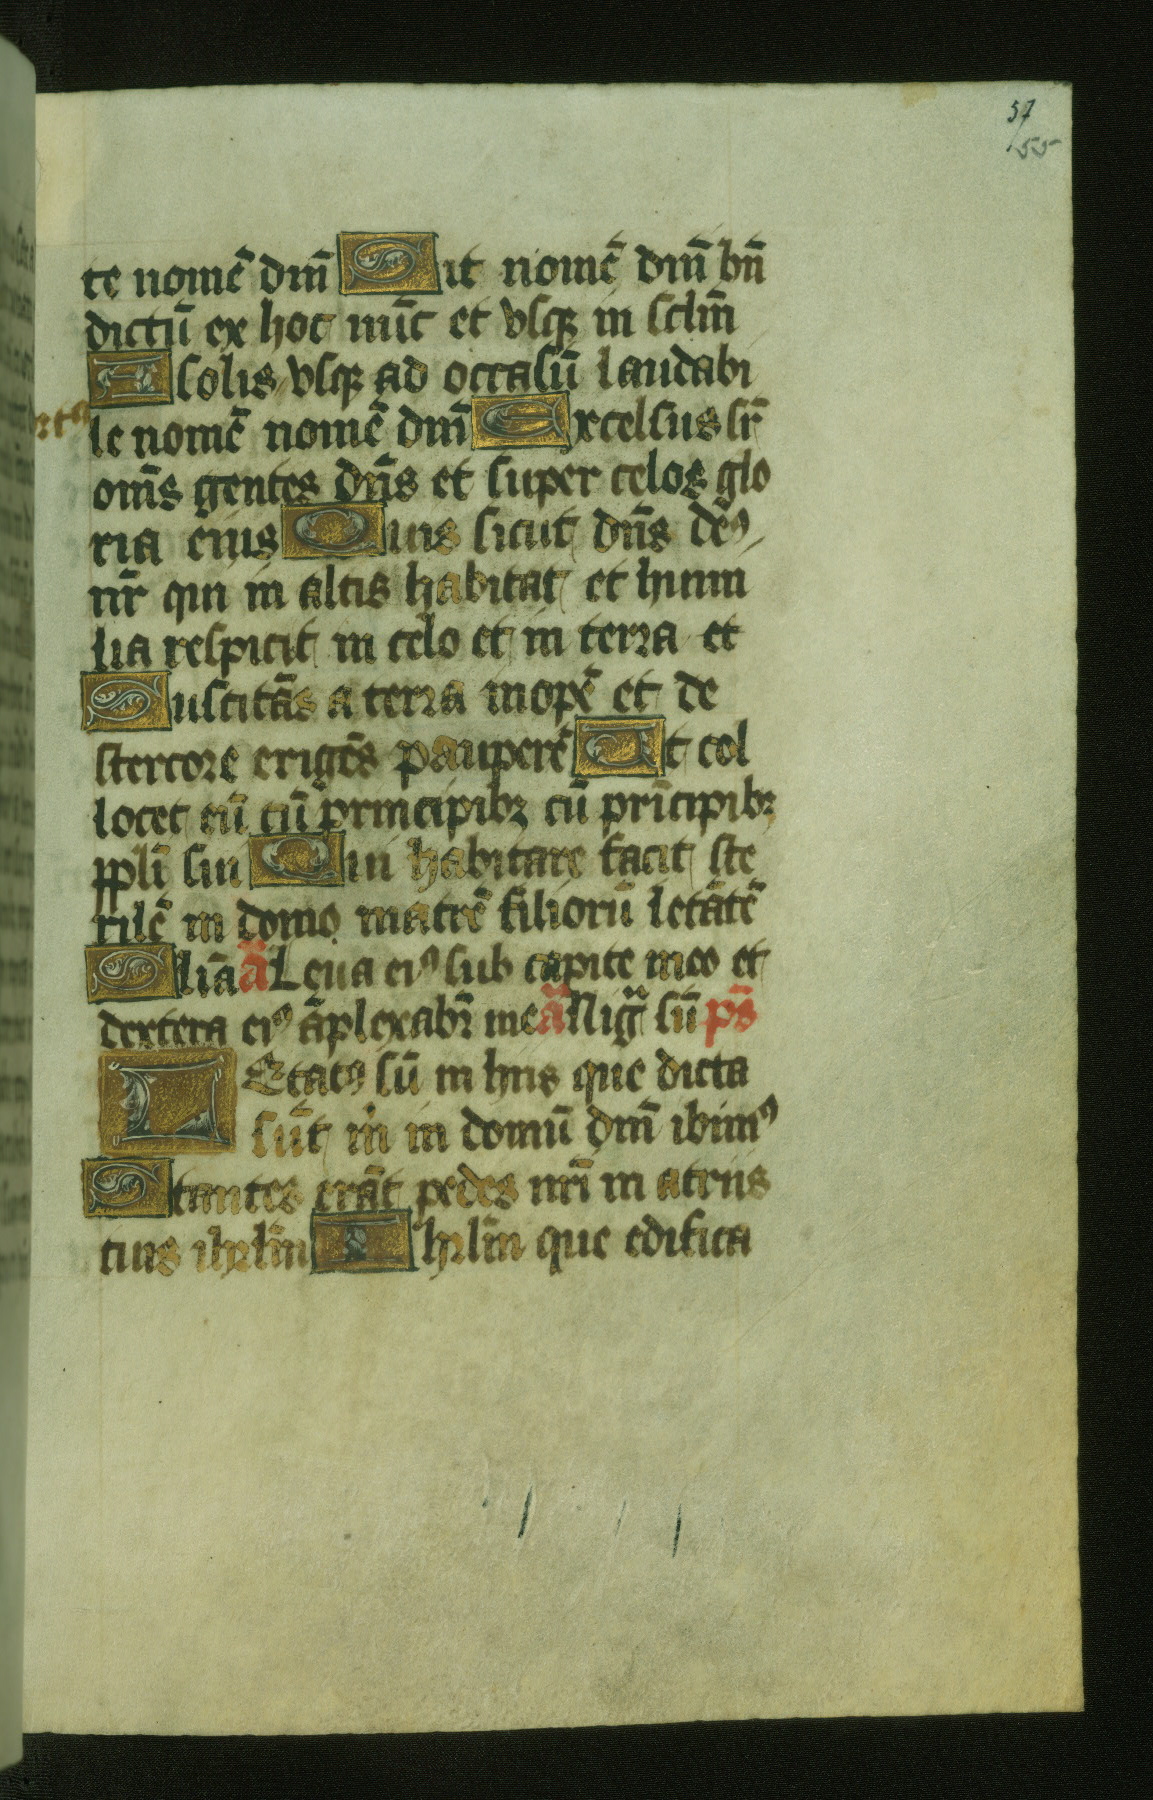 57
55
te nomē dm̄ Sit nomē dm̄ bn̄
dictū ex hoc nūc et vsq̨ in sclm̄
A solis vsq̨ ad occasū laudabi
le nomē nomē dm̄ Excelsus sr̄
om̄s gentes dn̄s et super celos glo
ria eius Quis sicut dn̄s deꝰ
nr̄ qui in altis habitat et humi
lia respicit in celo et in terra et
Suscitās a terra inopē et de
stercore erigēs pauperē Ut col
locet eū cū principibꝫ cū prīcipibꝫ
ppli sui Qui habitare facit ste
rilē in domo matrē filiorū letātē
Gliā ā Leua eiꝰ sub capite meo et
dextera eiꝰ āplexabr̄ me ā Nigᵃ sū ps̄
LEtatꝰ sū in hiis que dicta
sūt m̄ in domū dm̄ ibimꝰ
Stantes erāt pedes nrī in atriis
tuis ihrlm̄ Ihrlm̄ que edifica